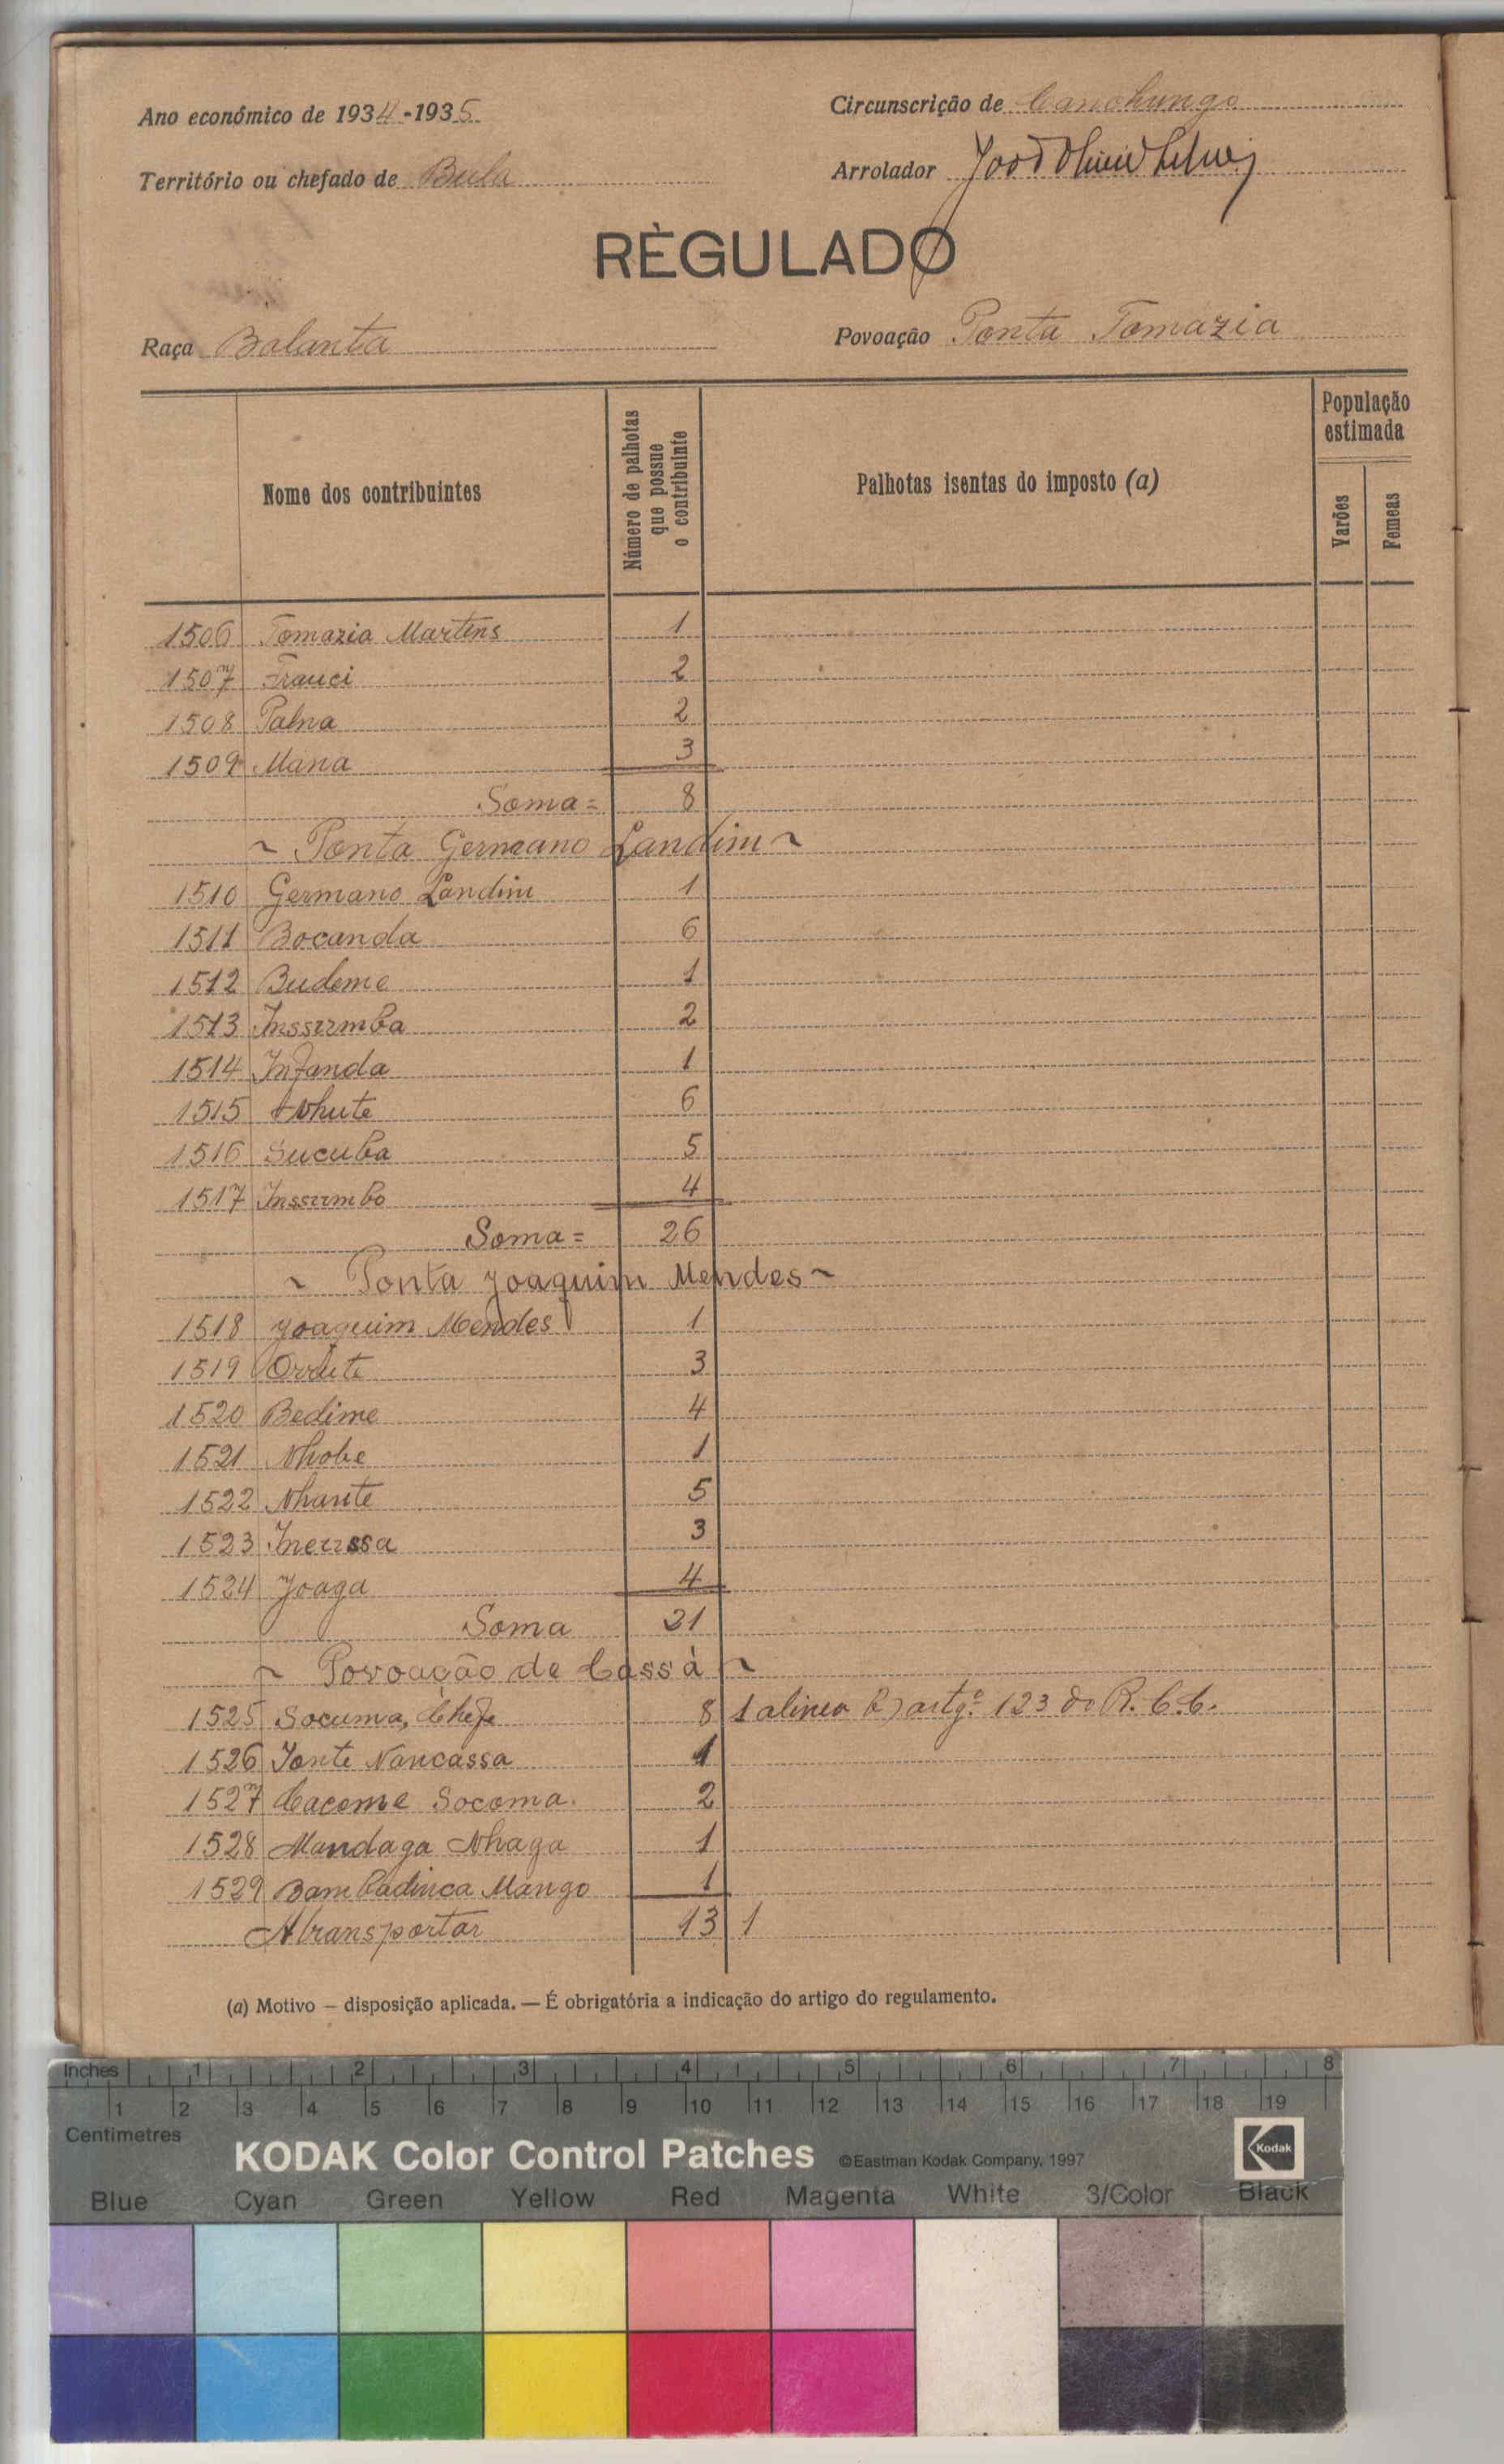 Ano económico de 1934-1935
Circunscrição de Canchungo
Território ou chefado de Bula
Arrolador
RÈGULADO
Raça Balanta
Povoação Ponta Tomázia
Nome dos contribuintes
Número de palhotas que possue o contribuinte
Palhotas isentas do imposto (a)
População estimada
Varões
Femeas
1506 Tomazia Martins 1
1507 Frauci 2
1508 Palna 2
1509 Mána 3
Soma = 8
~ Ponta Germano Landim ~
1510 Germano Landim 1
1511 Bocanda 6
1512 Budeme 1
1513 Inssumba 2
1514 Infanda 1
1515 Nhute 6
1516 Sucuba 5
1517 Inssumbo 4
Soma = 26
~ Ponta Joaquim Mendes ~
1518 Joaquim Mendes 1
1519 3
1520 Bedime 4
1521 Nhobe 1
1522 Nhante 5
1523 3
1524 Joaga 4
Soma 21
~ Povoação de Cassà ~
1525 Socuma, Chefe 8 1 alinea b) artgº 123 do R.C.C.
1526 Nancassa 1
1527 Cacome Socoma. 2
1528 Mandaga Nhaga 1
1529 Bambadinca Mango 1
A transportar 13 1
(a) Motivo — disposição aplicada. — É obrigatória a indicação do artigo do regulamento.
Inches 1 2 3 4 5 6 7 8
1 2 3 4 5 6 7 8 9 10 11 12 13 14 15 16 17 18 19
Centimetres
KODAK Color Control Patches ©Eastman Kodak Company, 1997 Kodak
Blue Cyan Green Yellow Red Magenta White 3/Color Black